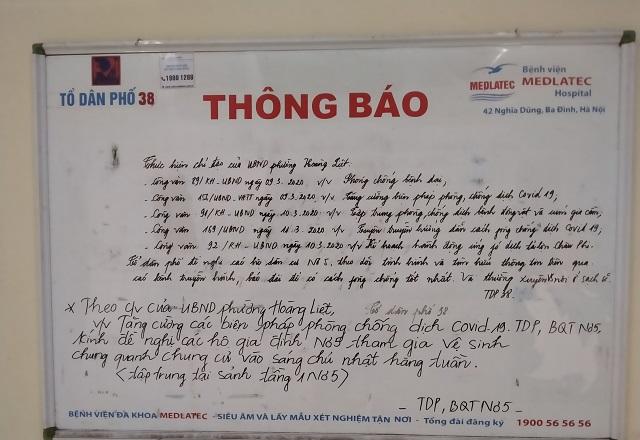 TỔ DÂN PHỐ 38
1900 1288
THÔNG BÁO
MEDLATEC
Bệnh viện
MEDLATEC
Hospital
42 Nghĩa Dũng, Ba Đình, Hà Nội
Thực hiện chỉ đạo của UBND phường Hoàng Liệt.
- Công văn 89/KH-UBND ngày 09.3.2020 v/v Phòng chống bệnh dại;
- Công văn 152/UBND-VHTT ngày 09.3.2020 v/v Tăng cường biện pháp phòng, chống dịch Covid 19;
- Công văn 91/KH-UBND ngày 10.3.2020 v/v Tập trung phòng, chống dịch bệnh động vật và cúm gia cầm,
- Công văn 169/UBND ngày 11.3.2020 v/v Tuyên truyền hướng dẫn cách phòng chống dịch Covid 19,
- Công văn 92/KH-UBND ngày 10.3.2020 v/v Kế hoạch hành động ứng phó dịch tả lợn Châu Phi.
Tổ dân phố đề nghị các hộ dân cư N05, theo dõi tình hình và tìm hiểu thông tin trên qua
các kênh truyền hình, báo đài để có cách phòng chống tốt nhất. Và thường xuyên
TDP 38.
x Theo c/v của UBND phường Hoàng Liệt, Tổ dân phố 38
v/v Tăng cường các biện pháp phòng chống dịch Covid.19. TDP, BQT N05.
kính đề nghị các hộ gia đình N05 tham gia vệ sinh
chung quanh chung cư vào sáng chủ nhật hàng tuần.
(tập trung tại sảnh tầng 1 N05)
- TDP, BQT N05 -
BỆNH VIỆN ĐA KHOA MEDLATEC - SIÊU ÂM VÀ LẤY MẪU XÉT NGHIỆM TẬN NƠI - Tổng đài đăng ký 1900 56 56 56